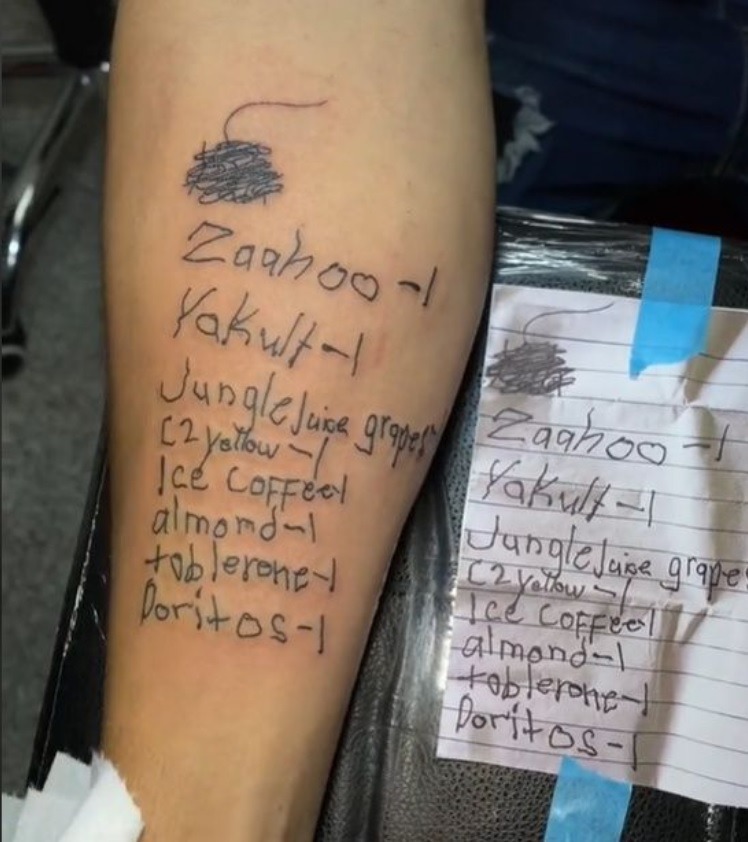 Zaahoo-1
Yakult-1
Jungle Juice grapes
C2 yellow-1
Ice COFFee1
almond-1
toblerone-1
Doritos-1
Zaahoo-1
Yakult-1
Jungle Juice grapes
C2 yellow-1
Ice COFFee1
almond-1
toblerone-1
Doritos-1